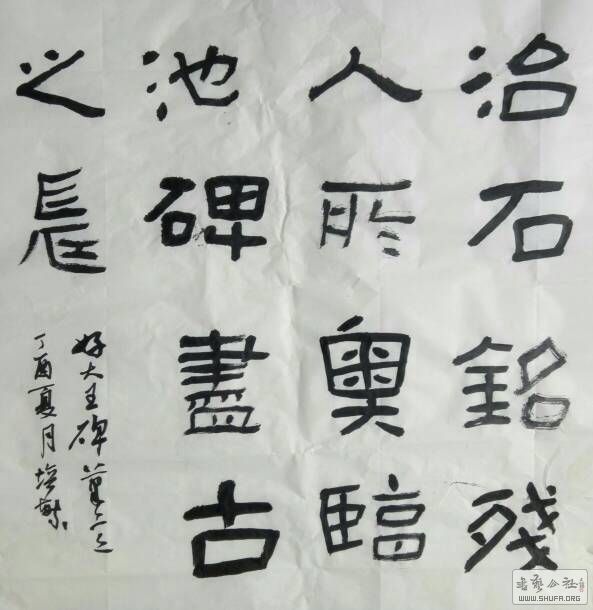 治石銘殘
人所奥臨
池碑盡古
之長
好大王碑筆意
丁酉夏月培
書藝公社
WWW.SHUFA.ORG